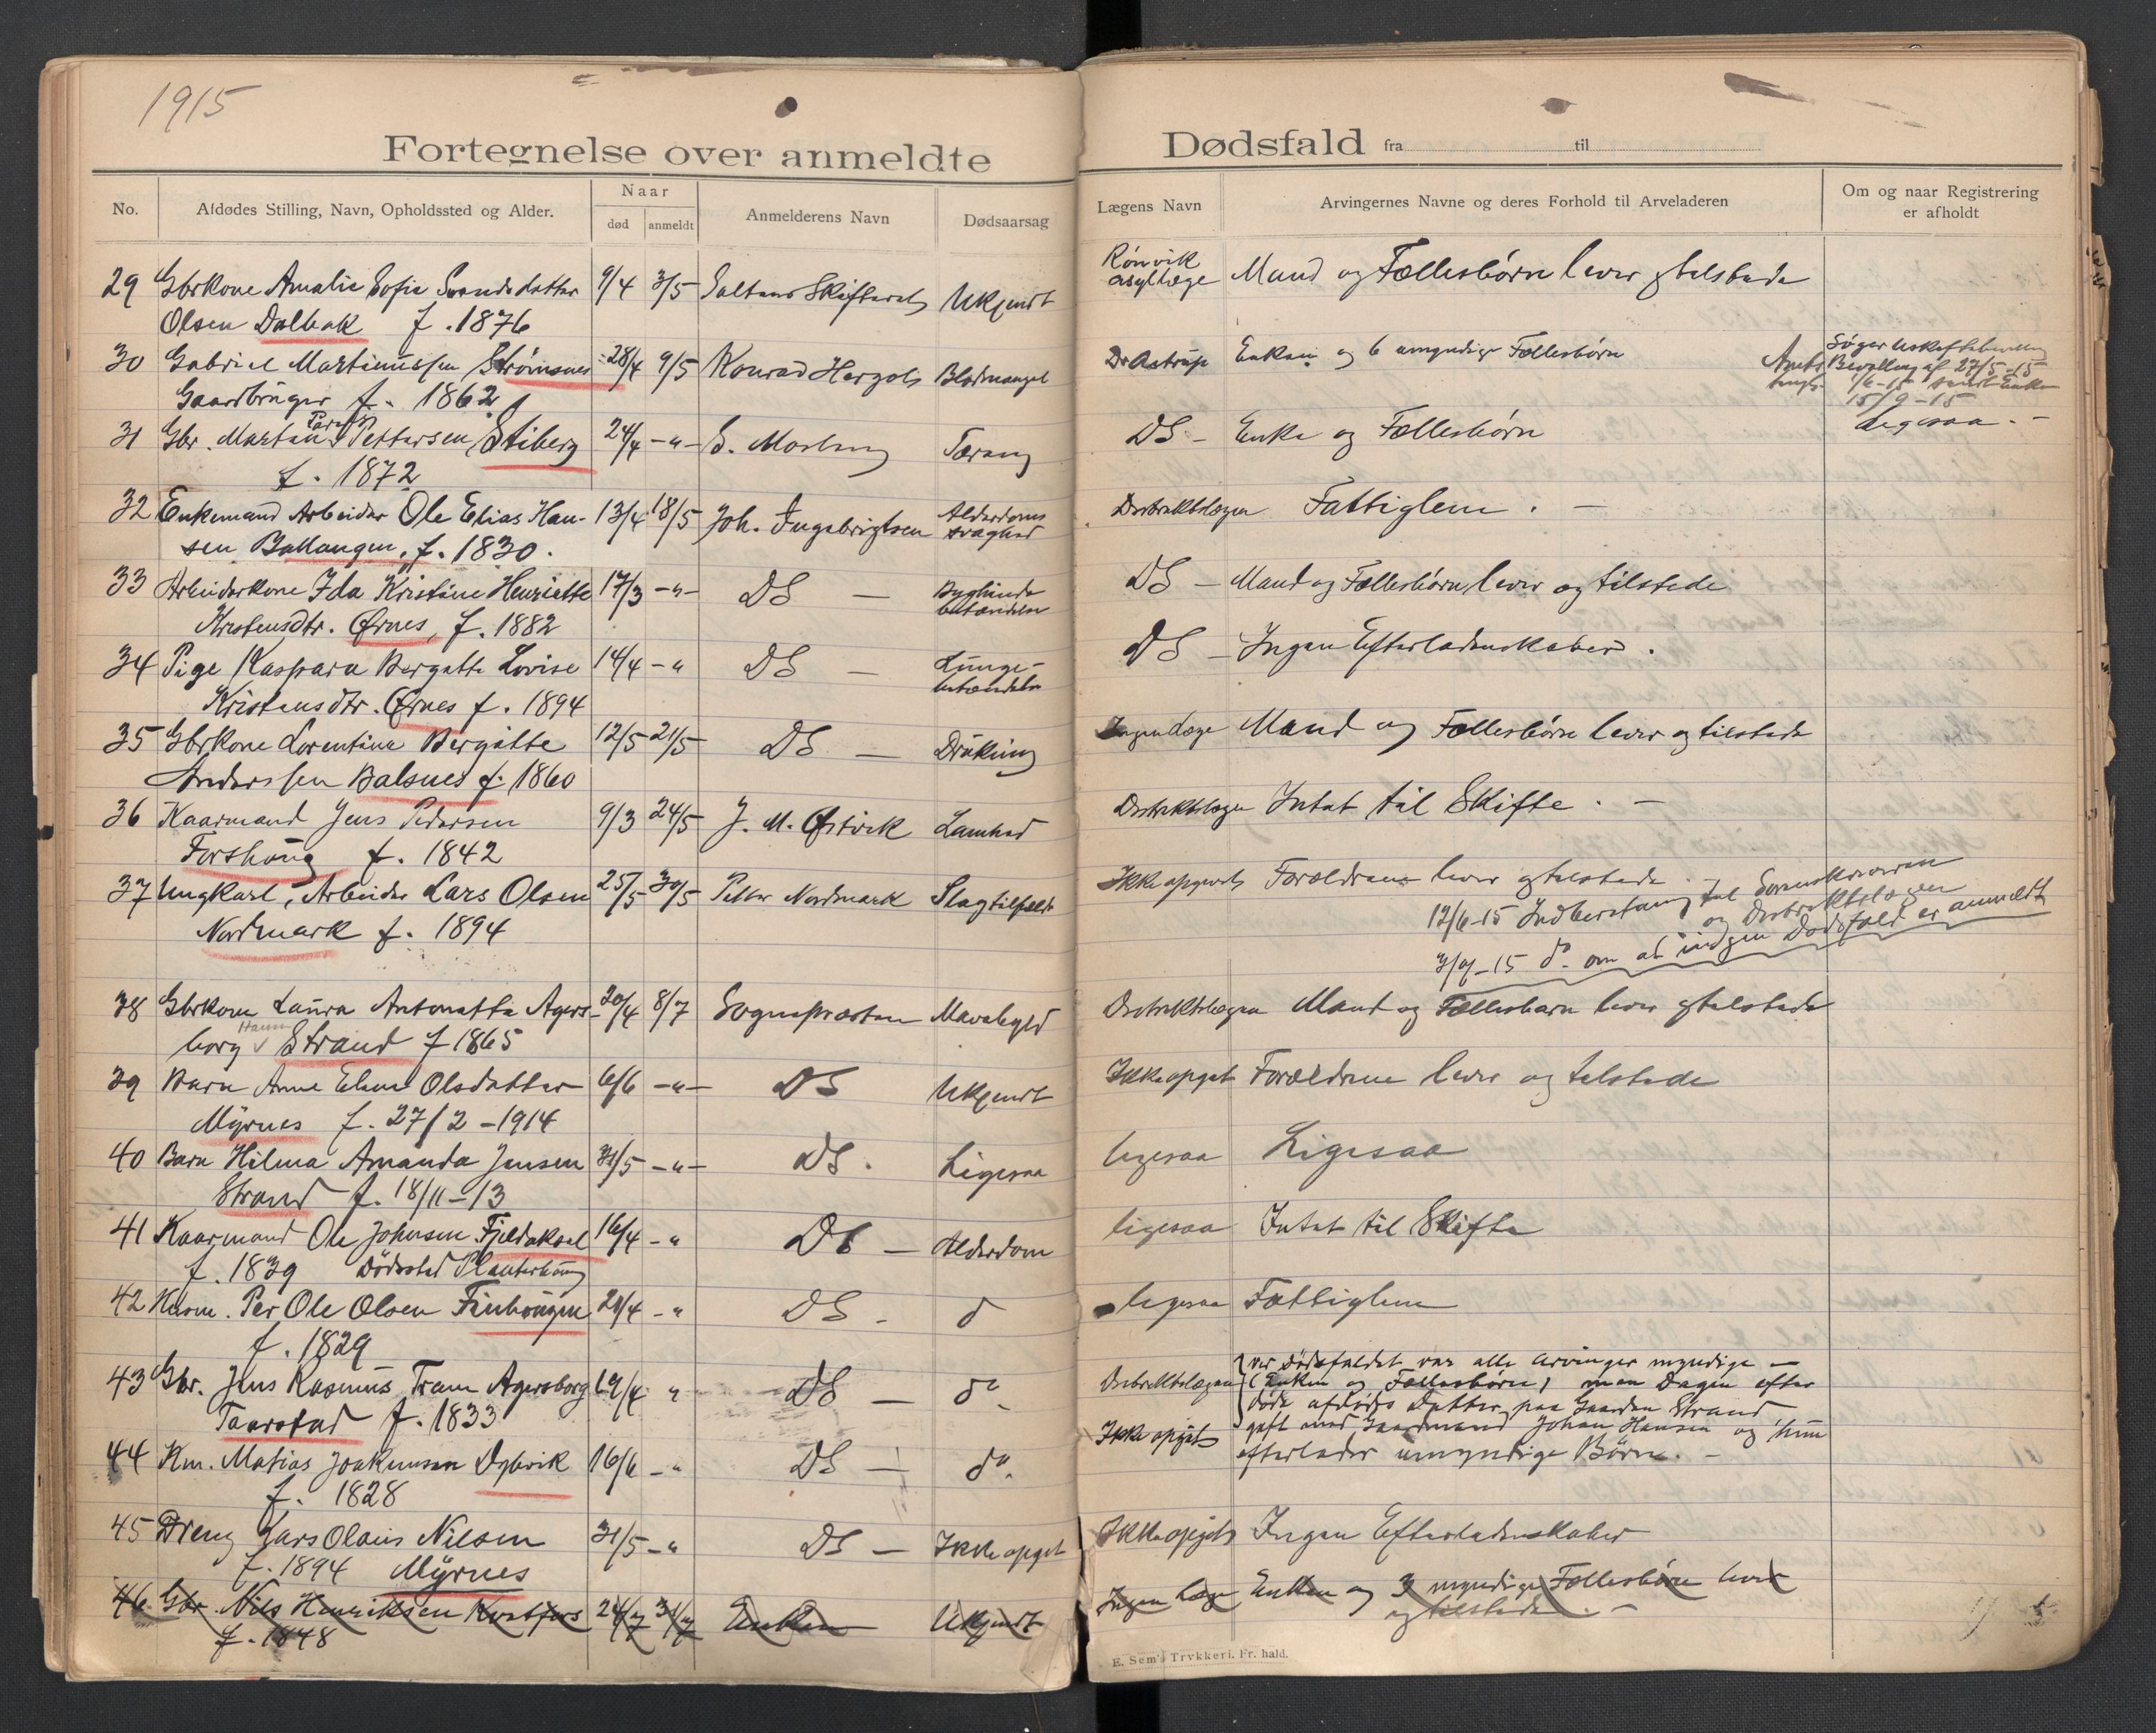 1915
Fortegnelse over anmeldte Dødsfald fra til
No.
Afdødes Stilling, Navn, Opholdssted og Alder.
Naar
død anmeldt
Anmelderens Navn
Dødsaarsag
Lægens Navn
Arvingernes Navne og deres Forhold til Arveladeren
Om og naar Registrering
er afholdt
29 Gbrkone Amalie Sofie Svendsdatter 9/4 3/5 Saltens Skifteret Ukjendt Rønvik asyllæge Mand og Fællesbørn lever og tilstede
Olsen Dalbak f. 1876
30 Gabriel Martinussen Strømsnes 28/4 9/5 Konrad Blodmangel Dr Astrup Enken og 6 umyndige Fællesbørn
Gaardbruger f. 1862
Bevilling af 27/5-15
1/6-15 sendt Enken
15/9-15
31 Gbr. Martin Pettersen Stiberg 24/4 -"- Tæring DS - Enke og Fællesbørn Ligesaa. -
f. 1872
32 Enkemand Arbeider Ole Elias Han- 13/4 18/5 Joh. Ingebrigtsen Alderdoms svaghed Distriktslægen Fattiglem. -
sen Ballangen, f. 1830.
33 Arbeiderkone Ida Kristine Henriette 17/3 -"- DS - Byghinde betændelse DS - Mand og Fællesbørn lever og tilstede
Kristensdtr. Ørnes, f. 1882
34 Pige Kaspara Bergatte Lovise 14/4 -" DS - Lunge- betændelse DS - Ingen Efterladenskaber.
Kristensdtr. Ørnes f. 1894
35 Gbrkone Lorentine Bergitte 12/5 21/5 DS - Drukning Ingen Læge Mand og Fællesbørn lever og tilstede
Anderssen Balsnes f. 1860
36 Kaarmand Jens Pedersen 9/3 24/5 J. M. Østvik Lamhed Distriktslægen Intet til Skifte. -
Forshaug f. 1842
37 Ungkarl, Arbeider Lars Olsen 25/5 30/5 Petter Nordmark Slagtilfælde Ikke opgivet Forældrene lever og tilstede.
Nordmark f. 1894
12/6-15 Indberetning til Sorenskriveren
og Distriktslægen
3/7-15 do. om at ingen Dødsfald er anmeldt
38 Gbrkone Laura Antonette Agers- 20/4 8/7 Sognepræsten Mavebyld Distriktslægen Mand og Fællesbarn lever og tilstede
borg Strand f 1865
39 Barn Anne Elene Olsdatter 6/6 -"- DS Ukjendt Ikke opget Forældrene lever og tilstede
Myrnes f. 27/2-1914
40 Barn Hilma Amanda Jensen 31/5 -"- DS. Ligesaa ligesaa Ligesaa
Strand f. 18/11-13
41 Kaarmand Ole Johnsen Fjeldaksel 16/4 -" DS - Alderdom ligesaa Intet til Skifte
f. 1839 Dødssted Planterhaug
42 Husm. Per Ole Olsen Finhaugen 28/4 -" DS - d ligesaa Fattiglem
f. 1829
43 Gbr. Jens Rasmus Tram Agersborg 19/4 " DS - do. Distriktslægen ved Dødsfaldet var alle Arvinger myndige -
Taarstad f. 1833
(Enken og Fællesbørn) men Dagen efter
døde afdødes Datter paa Gaarden Strand
gift med Gaardmand Johan Hansen og hun
efterlader umyndige Børn. -
44 Km. Matias Joakimsen Dybvik 16/6 -" DS - do. Ikke opgit
f. 1828
45 Dreng Lars Olaus Nilsen 31/5 -" DS - Ikke opget Ikke opgit Ingen Efterladenskaber
f. 1894 Myrnes
46 Gbr. Nils Henriksen 24/7 31/7 Enken Ukjendt Ingen Læge Enken og 3 myndige Fællesbørn lever
f. 1848 og tilstede. -
E. Sem's Trykkeri, Fr. hald.